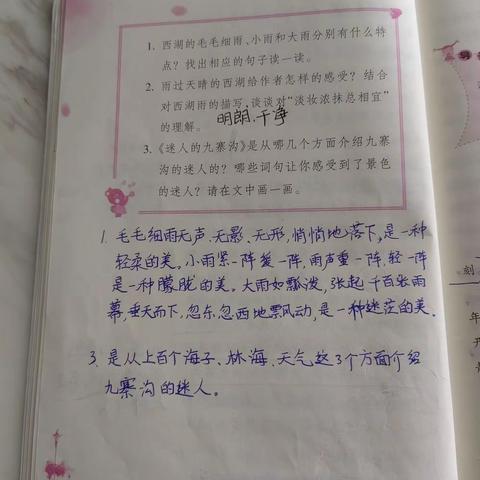 1. 西湖的毛毛细雨、小雨和大雨分别有什么特
点？找出相应的句子读一读。
2. 雨过天晴的西湖给作者怎样的感受？结合
对西湖雨的描写，谈谈对“淡妆浓抹总相宜”
的理解。
明朗、干净
3.《迷人的九寨沟》是从哪几个方面介绍九寨
沟的迷人的？哪些词句让你感受到了景色
的迷人？请在文中画一画。
1. 毛毛细雨无声、无影、无形，悄悄地落下，是一种
轻柔的美。小雨紧一阵缓一阵，雨声重一阵，轻一阵
是一种朦胧的美。大雨如瓢泼，张起千百张雨
幕，垂天而下，忽东忽西地飘动，是一种迷茫的美。
3. 是从上百个海子、林海、天气这3个方面介绍
九寨沟的迷人。
刻
年